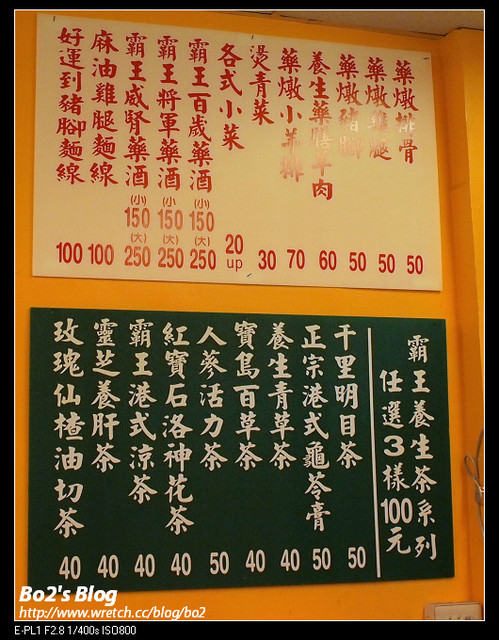 藥燉排骨 50
藥燉雞腿 50
藥燉豬腳 50
養生藥膳羊肉 60
藥燉小羊排 70
燙青菜 30
各式小菜 20 up
霸王百歲藥酒 (小) 150 (大) 250
霸王將軍藥酒 (小) 150 (大) 250
霸王威腎藥酒 (小) 150 (大) 250
麻油雞腿麵線 100
好運到豬腳麵線 100
霸王養生茶系列
任選3樣100元
千里明目茶 50
正宗港式龜苓膏 50
養生青草茶 40
寶島百草茶 40
人蔘活力茶 50
紅寶石洛神花茶 40
霸王港式涼茶 40
靈芝養肝茶 40
玫瑰仙楂油切茶 40
Bo2's Blog
http://www.wretch.cc/blog/bo2
E-PL1 F2.8 1/400s ISO800